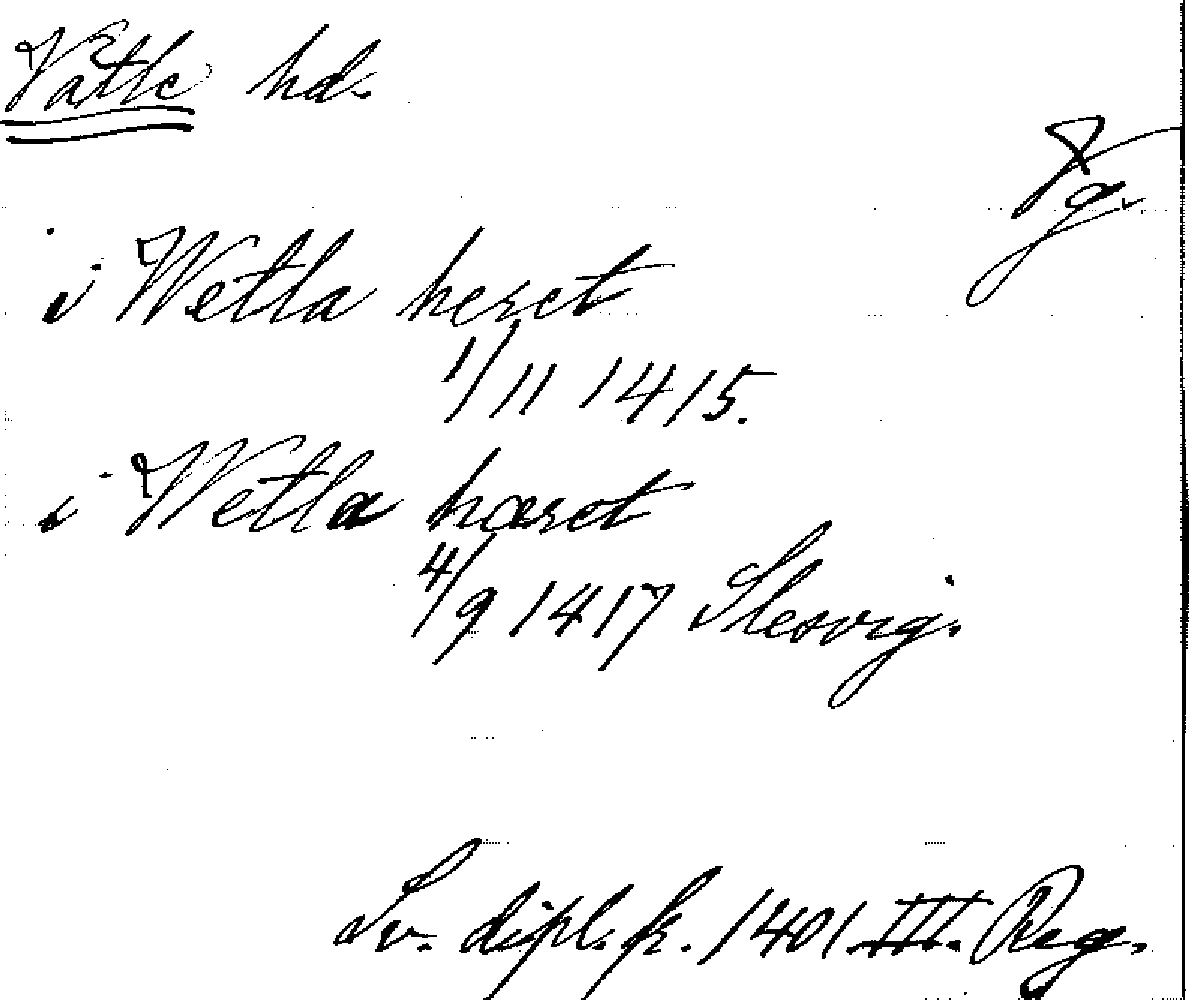 Vätle hd.
Vg.
i Wetla heret
1/11 1415.
i Wetla hæret
4/9 1417 Slesvig.
Sv. dipl. fr. 1401 III. Reg.